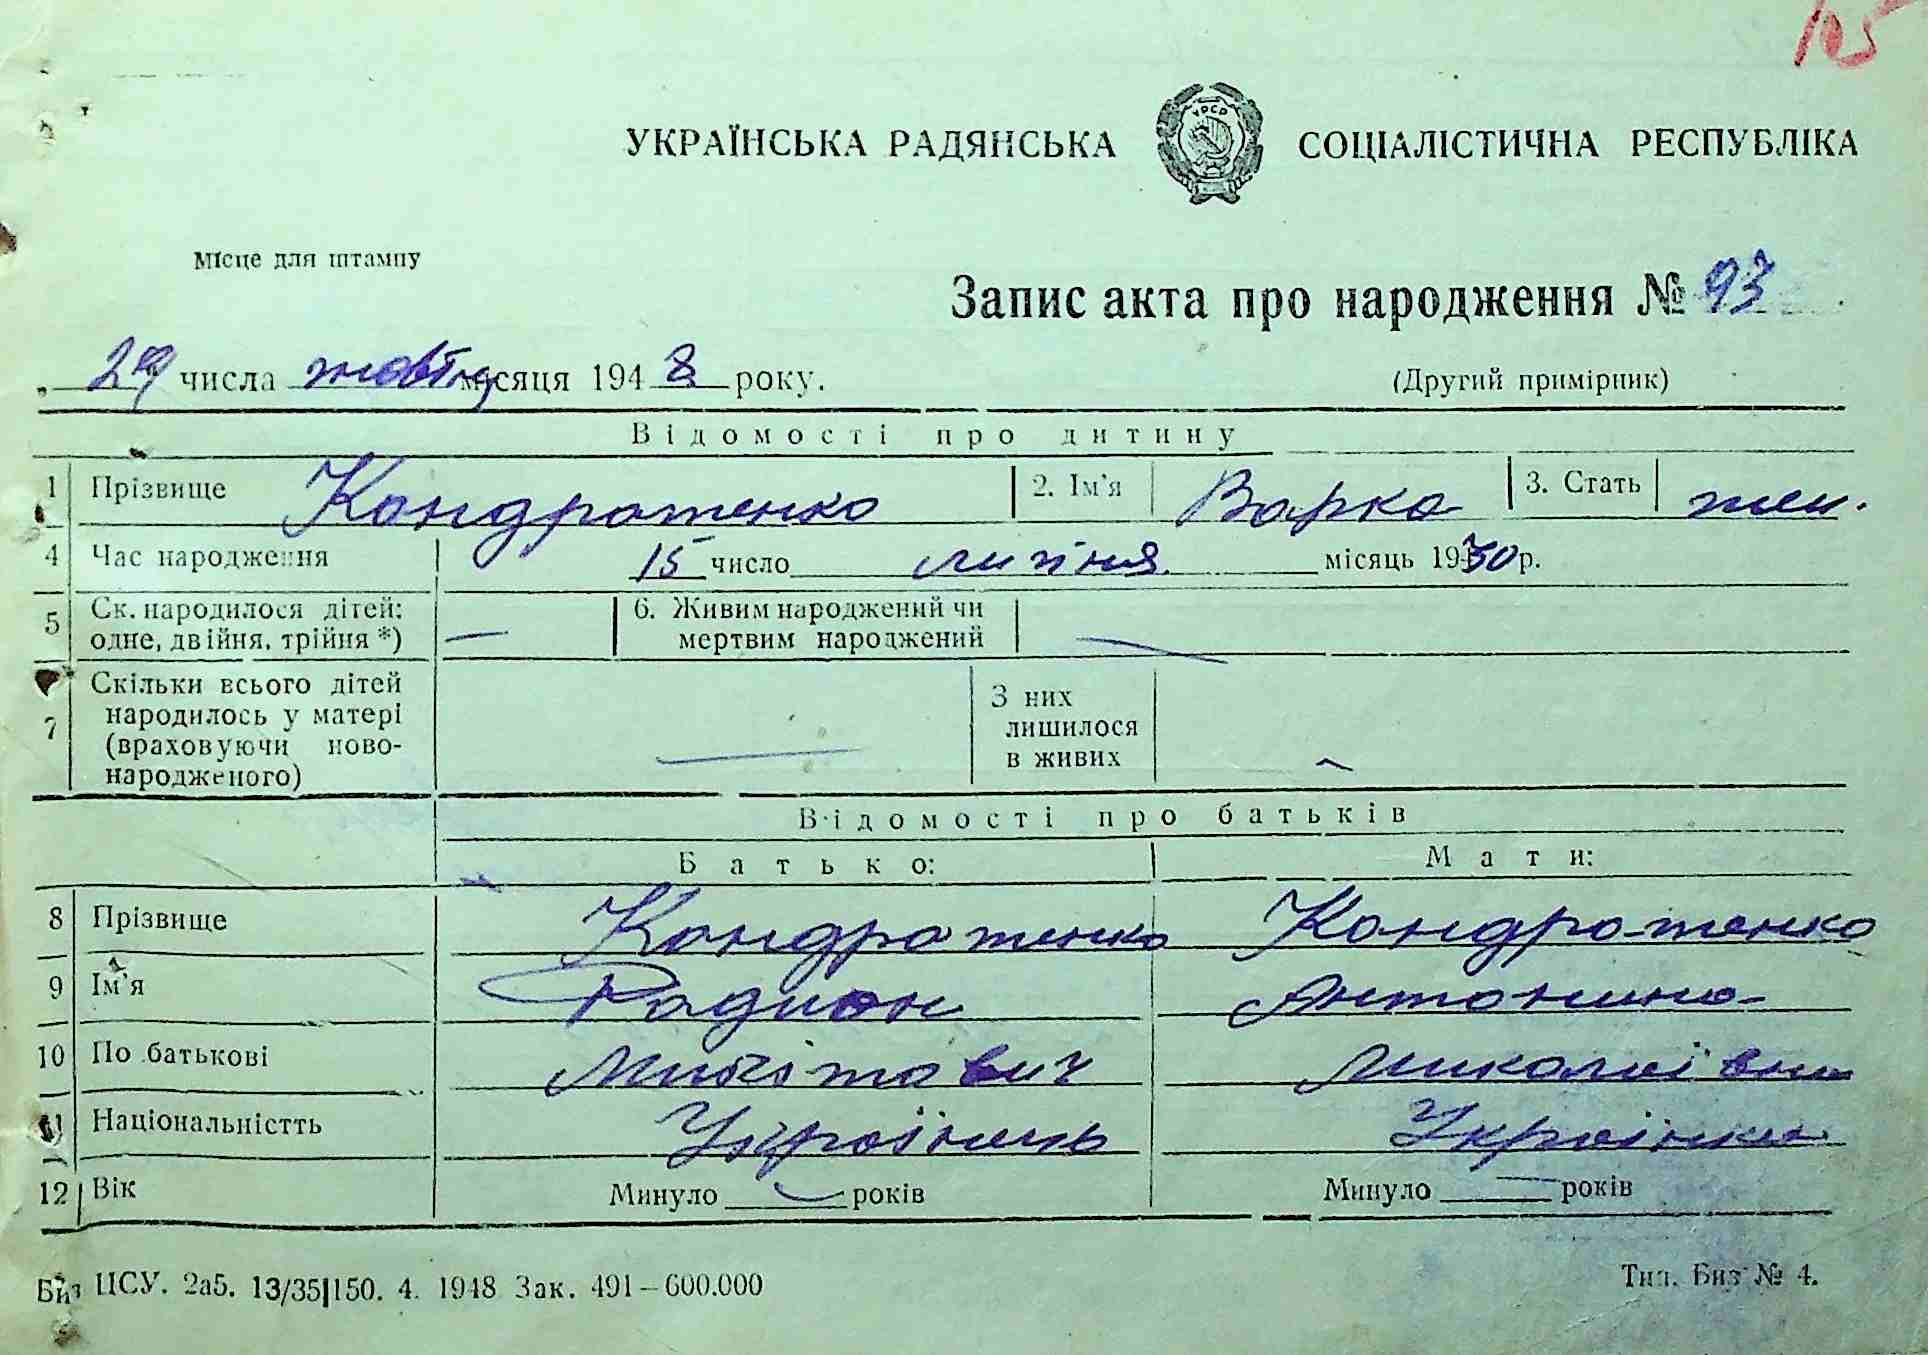 105
УКРАЇНСЬКА РАДЯНСЬКА СОЦІАЛІСТИЧНА РЕСПУБЛІКА
УРСР
Місце для штампу
Запис акта про народження № 93
29 числа жовтня місяця 1948 року.
(Другий примірник)
Відомості про дитину
1 Прізвище Кондратенко 2. Ім'я Варка 3. Стать жен.
4 Час народження 15 число липня місяць 1930 р.
5 Ск. народилося дітей: одне, двійня, трійня *) — 6. Живим народжений чи мертвим народжений —
7 Скільки всього дітей народилось у матері (враховуючи новонародженого) — З них лишилося в живих —
Відомості про батьків
Батько: Мати:
8 Прізвище Кондратенко Кондратенко
9 Ім'я Радион Антонина
10 По батькові Микітович Миколаївна
11 Національністть Українець Українка
12 Вік Минуло — років Минуло — років
Биз ЦСУ. 2а5. 13/35|150. 4. 1948 Зак. 491—600.000
Тип. Биз № 4.